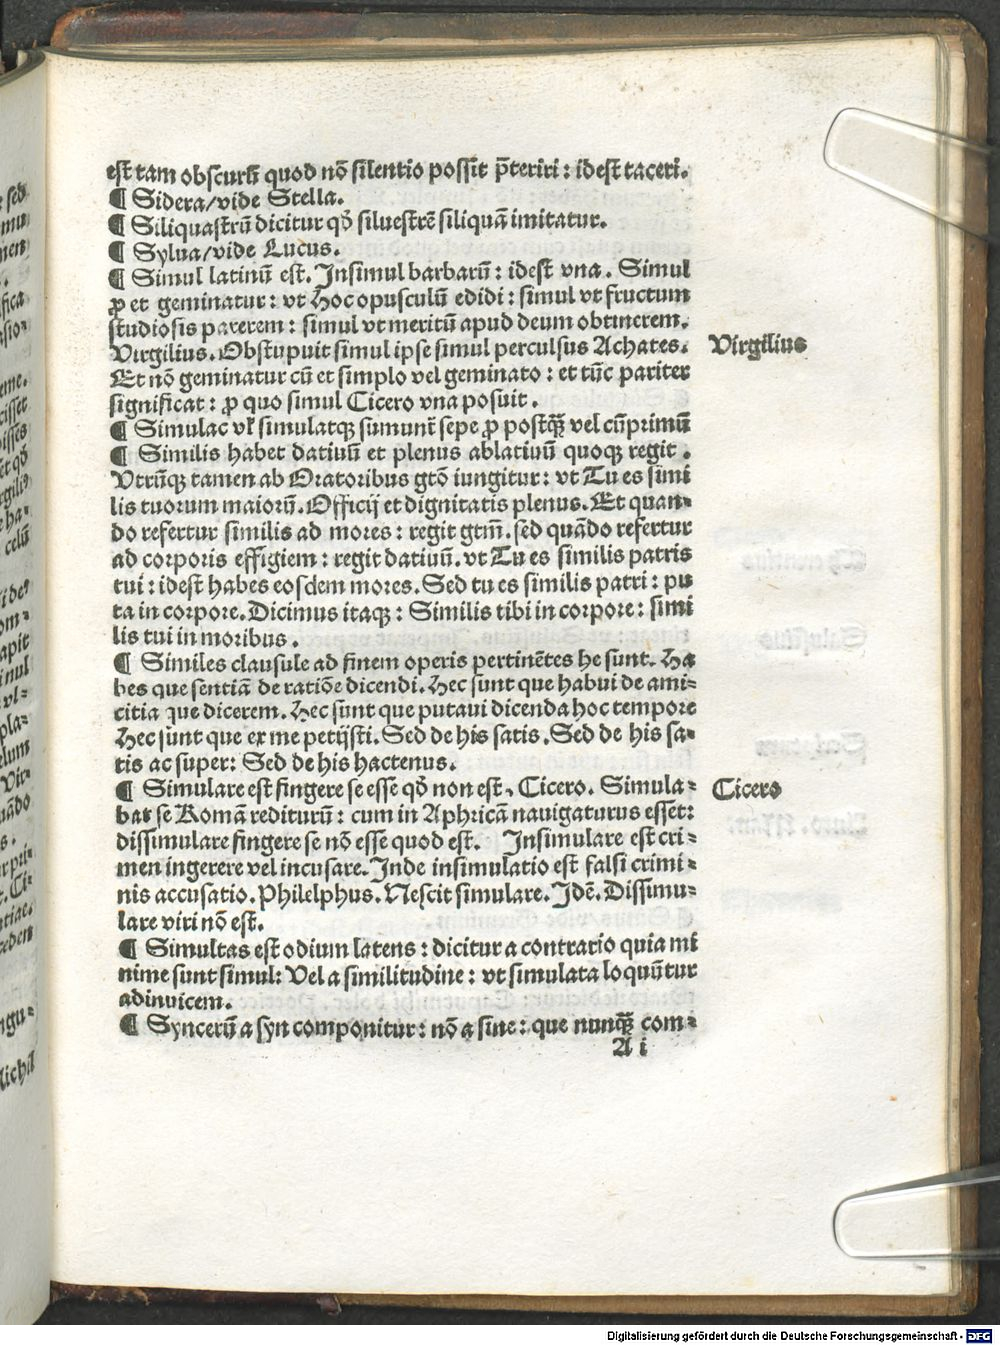 est tam obscurū quod nō silentio possit p̄teriri : idest taceri.
¶ Sidera/vide Stella.
¶ Siliquastrū dicitur qꝭ siluestrē siliquā imitatur.
¶ Sylua/vide Lucus.
¶ Simul latinū est. Insimul barbarū : idest vna. Simul
ꝓ et geminatur : vt Hoc opusculū edidi : simul vt fructum
studiosis parerem : simul vt meritū apud deum obtinerem.
Virgilius. Obstupuit simul ipse simul perculsus Achates.
Virgilius
Et nō geminatur cū et simplo vel geminato : et tūc pariter
significat : ꝓ quo simul Cicero vna posuit.
¶ Simulac vl simulatqꝫ sumunt̄ sepe ꝓ postqꝫ̄ vel cūprimū
¶ Similis habet datiuū et plenus ablatiuū quoqꝫ regit.
Vtrūqꝫ tamen ab Oratoribus gt̄o iungitur : vt Tu es simi
lis tuorum maiorū. Officij et dignitatis plenus. Et quan-
do refertur similis ad mores : regit gtm̄. sed quādo refertur
ad corporis effigiem : regit datiuū. vt Tu es similis patris
tui : idest habes eosdem mores. Sed tu es similis patri : pu
ta in corpore. Dicimus itaqꝫ : Similis tibi in corpore : simi
lis tui in moribus.
¶ Similes clausule ad finem operis pertinētes he sunt. Ha
bes que sentiā de ratiōe dicendi. Hec sunt que habui de ami-
citia que dicerem. Hec sunt que putaui dicenda hoc tempore
Hec sunt que ex me petijsti. Sed de his satis. Sed de his sa-
tis ac super: Sed de his hactenus.
¶ Simulare est fingere se esse qꝭ non est, Cicero. Simula-
Cicero
bat se Romā rediturū : cum in Aphricā nauigaturus esset:
dissimulare fingere se nō esse quod est. Insimulare est cri-
men ingerere vel incusare. Inde insimulatio est falsi crimi-
nis accusatio. Philelphus. Nescit simulare. Idē. Dissimu-
lare viri nō est.
¶ Simultas est odium latens : dicitur a contrario quia mi
nime sunt simul: Vel a similitudine : vt simulata loquūtur
adinuicem.
¶ Syncerū a syn componitur : nō a sine : que nunqꝫ̄ com-
A i
Digitalisierung gefördert durch die Deutsche Forschungsgemeinschaft - DFG